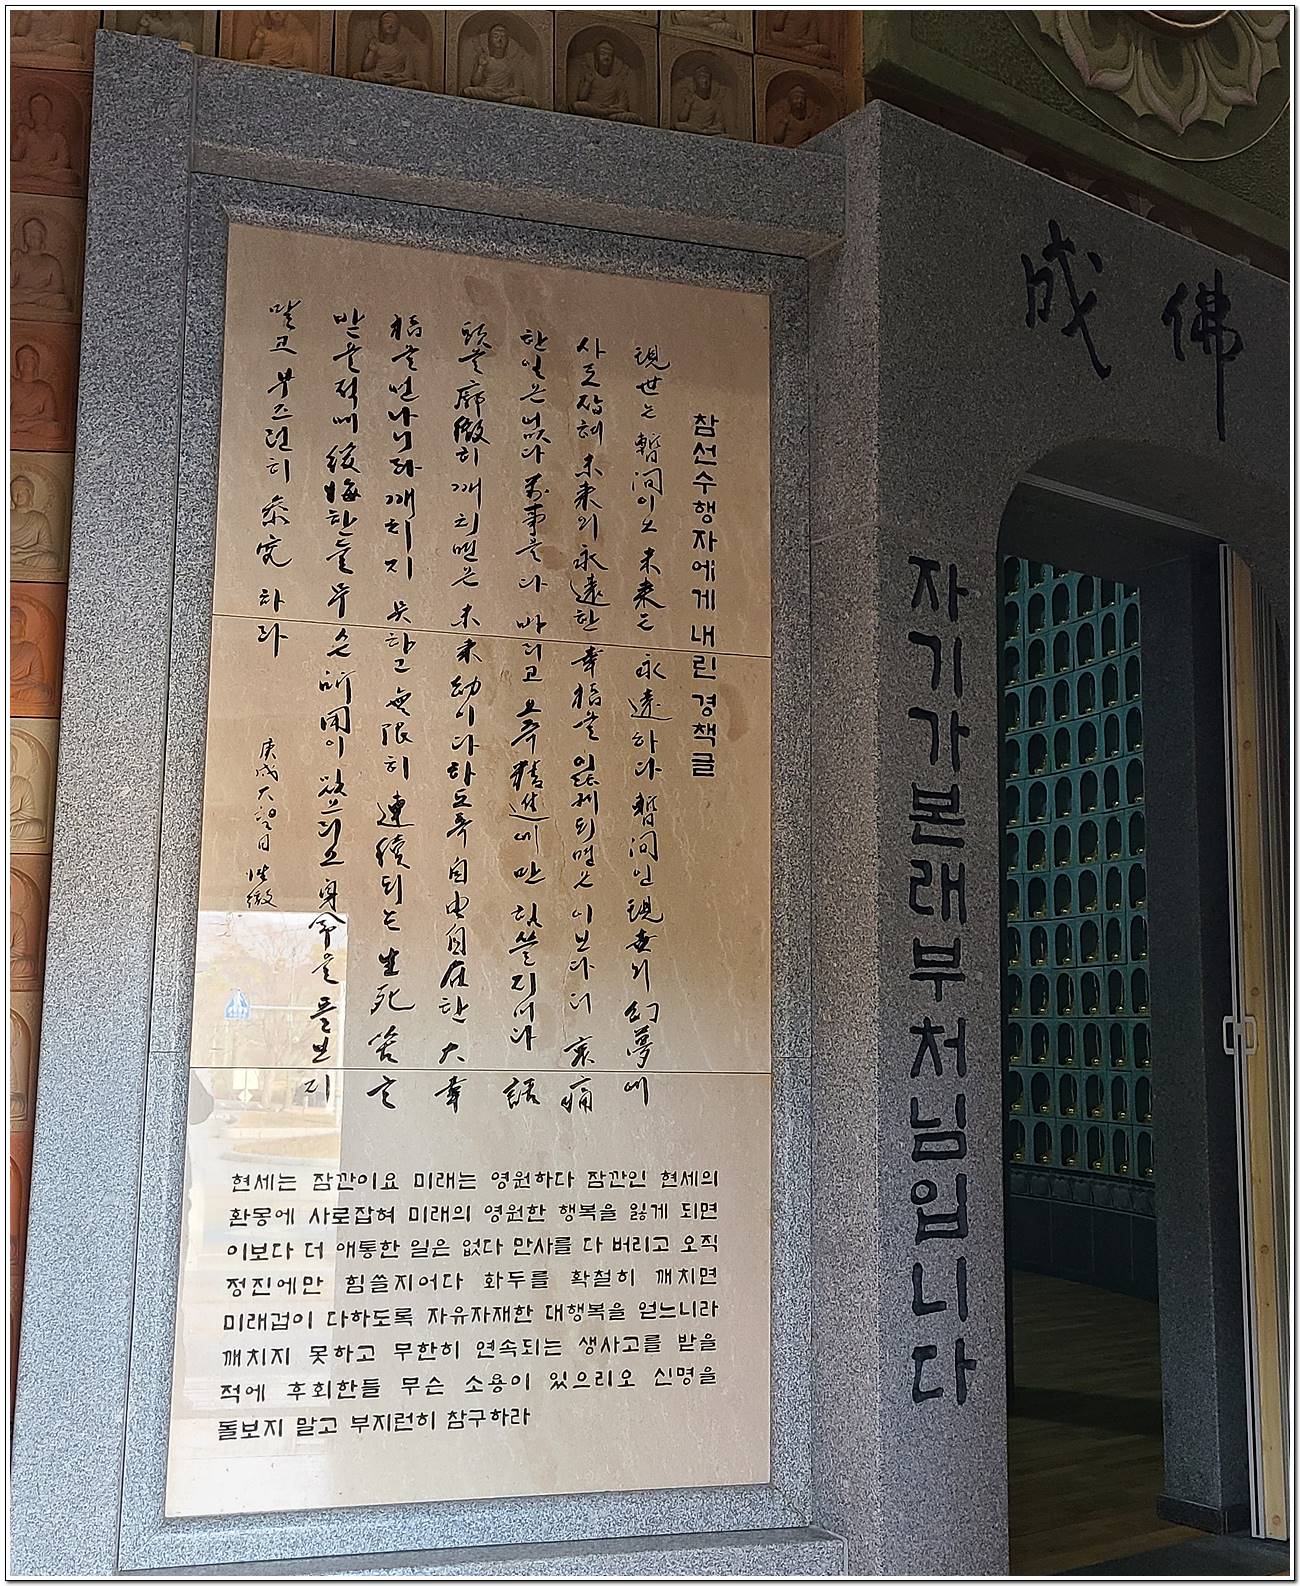 成佛
참선수행자에게 내린 경책글
現世는 暫间이요 未来는 永遠하다 暫间인 現世의 幻夢에
사로잡혀 未来의 永遠한 幸福을 잃게되면 이보다 더 哀痛
한일은 없다 萬事를 다 바리고 오즉 精進에만 힘쓸지어다 話
頭를 廓徹히 깨치면은 未来劫이다하도록 自由自在한 大幸
福을 얻나니라 깨치지 못하고 無限히 連續되는 生死苦를
받을적에 後悔한들 무슨 所用이 있으리오 身命을 돌보지
말고 부즈런히 参究하라
庚戌 大望日 性徹
현세는 잠깐이요 미래는 영원하다 잠깐인 현세의
환몽에 사로잡혀 미래의 영원한 행복을 잃게 되면
이보다 더 애통한 일은 없다 만사를 다 버리고 오직
정진에만 힘쓸지어다 화두를 확철히 깨치면
미래겁이 다하도록 자유자재한 대행복을 얻느니라
깨치지 못하고 무한히 연속되는 생사고를 받을
적에 후회한들 무슨 소용이 있으리오 신명을
돌보지 말고 부지런히 참구하라
자기가본래부처님입니다